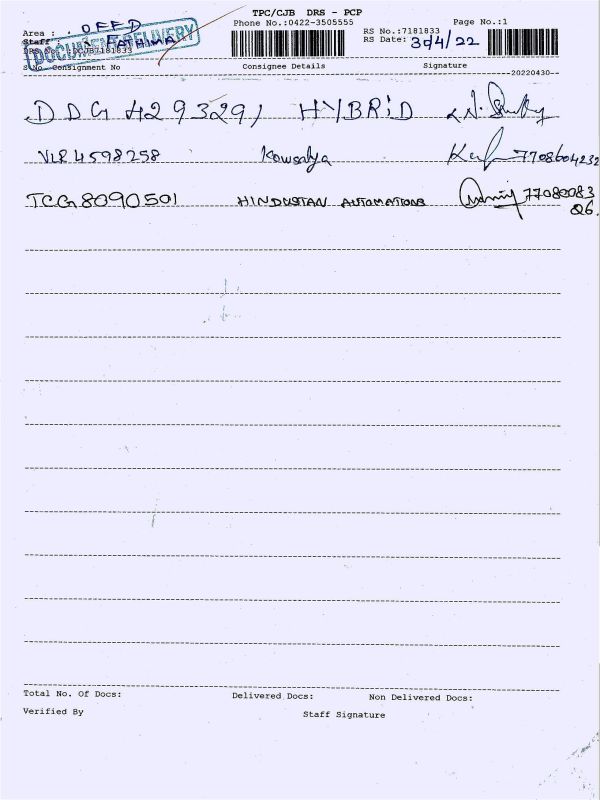 TPC/CJB DRS - PCP
Phone No.:0422-3505555 Page No.:1
Area : OFFD
Staff : FATHIMA
DOCUMENT DELIVERY
RS No.:7181833
RS Date: 30/4/22
S.No Consignment No Consignee Details Signature
--20220430--
DDG 4293291 HYBRID
VLR 4598258 Kowsalya 7708604232
TCG8090501 HINDUSTAN AUTOMATIONS 77080083
26.
Total No. Of Docs: Delivered Docs: Non Delivered Docs:
Verified By Staff Signature